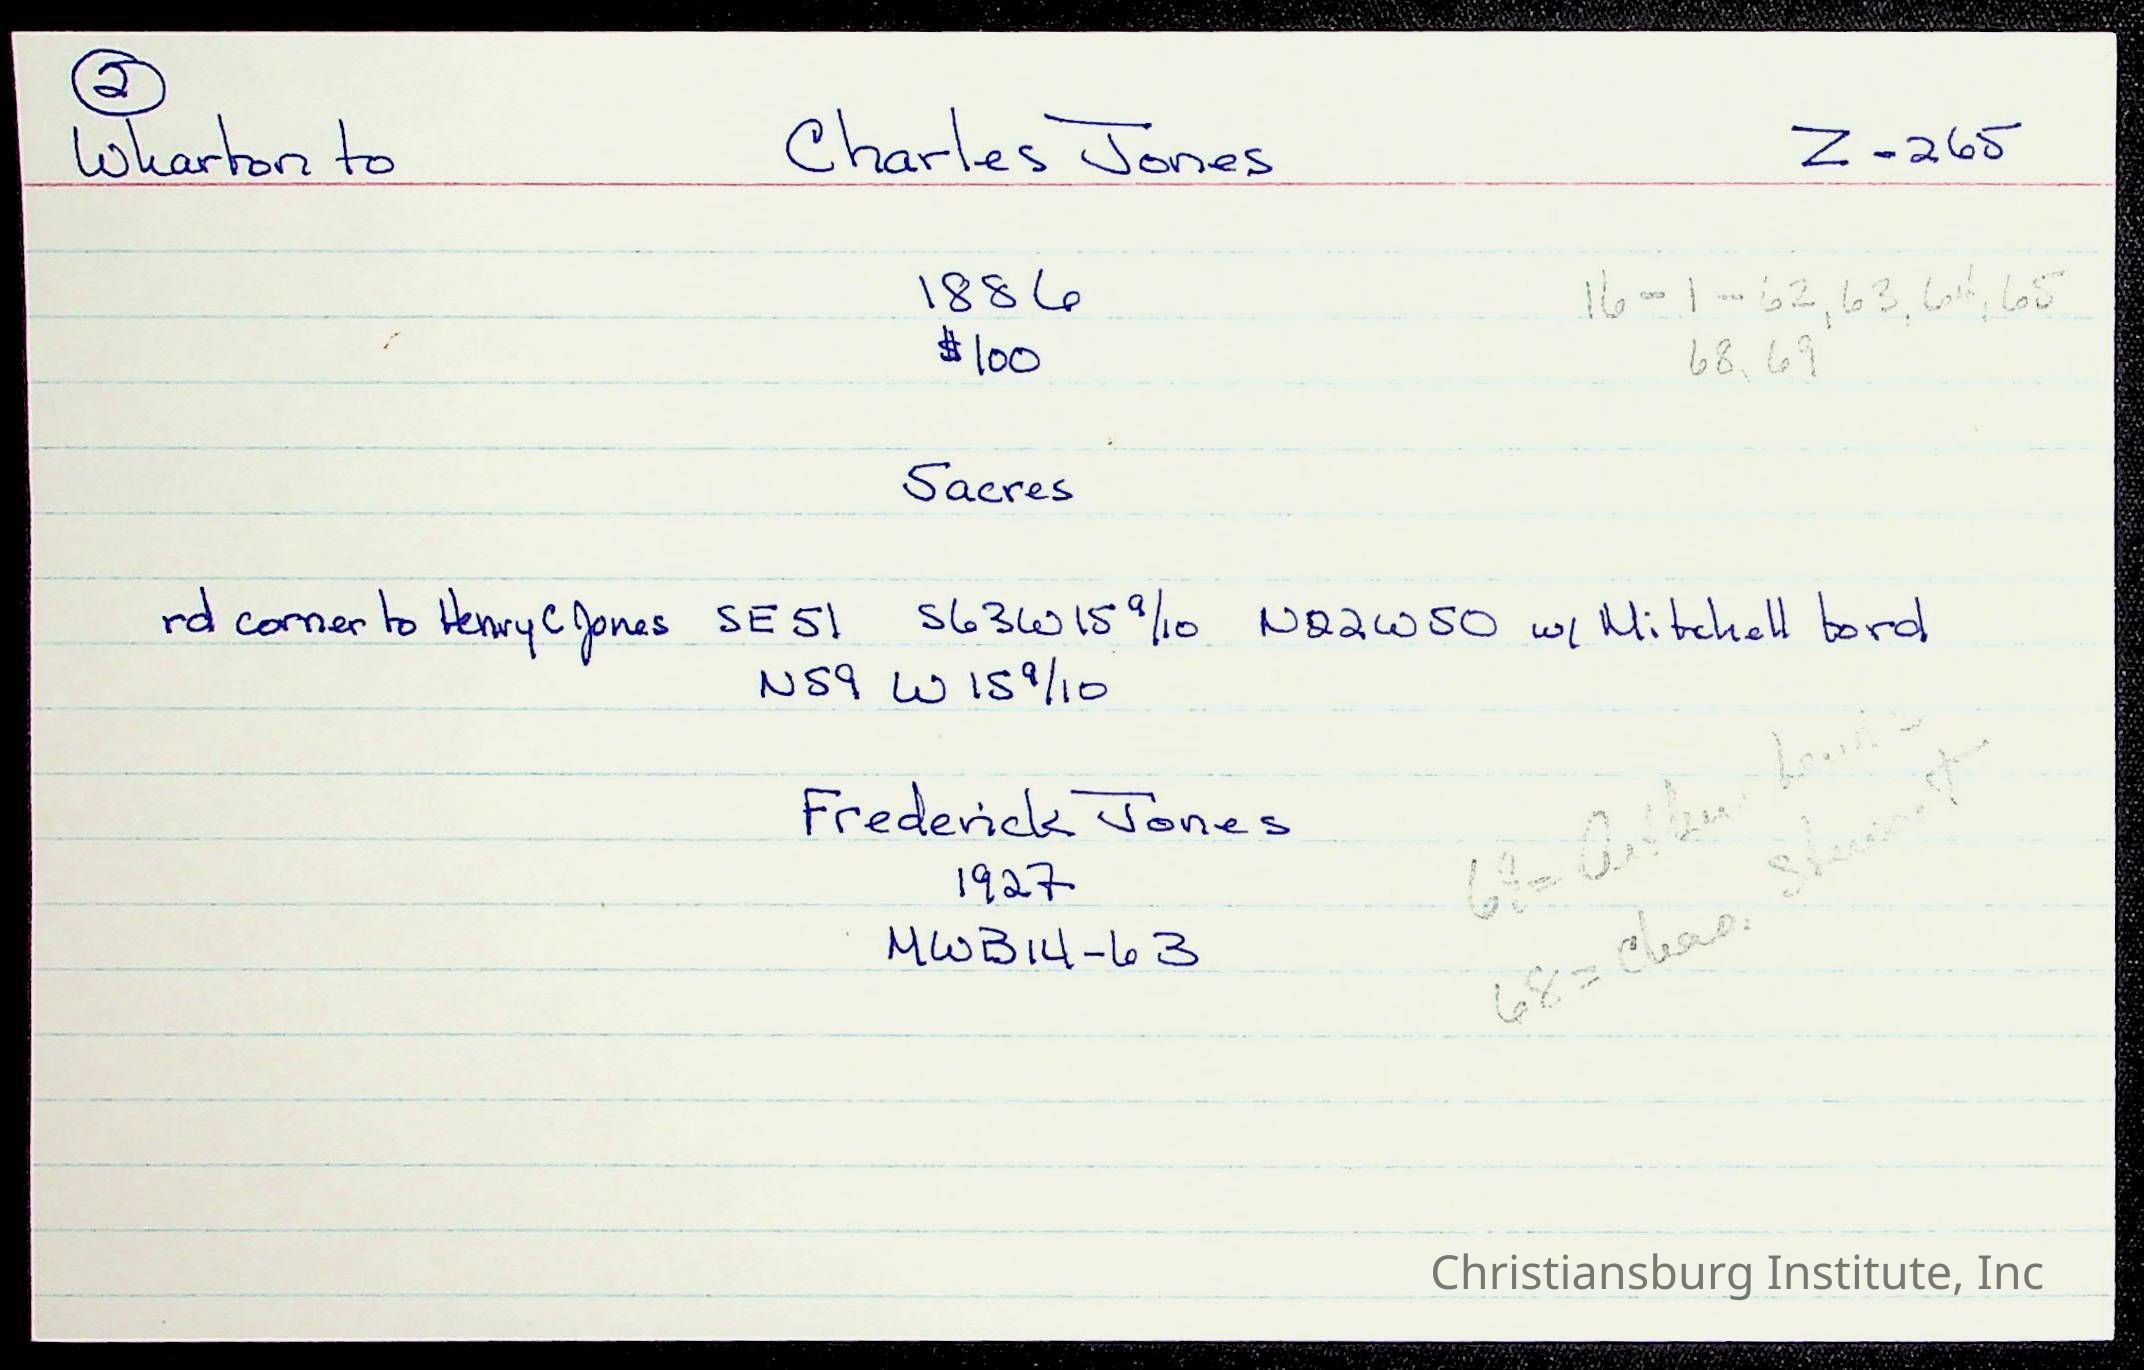 2
Wharton to Charles Jones Z-265
1886
16-1-62,63,64,65
$100
68,69
5acres
rd corner to Henry C Jones SE51 S63W15 9/10 N22W50 w/ Mitchell to rd
N59 W 15 9/10
Frederick Jones
1927
MWB14-63
68= Chas. Stewart
Christiansburg Institute, Inc